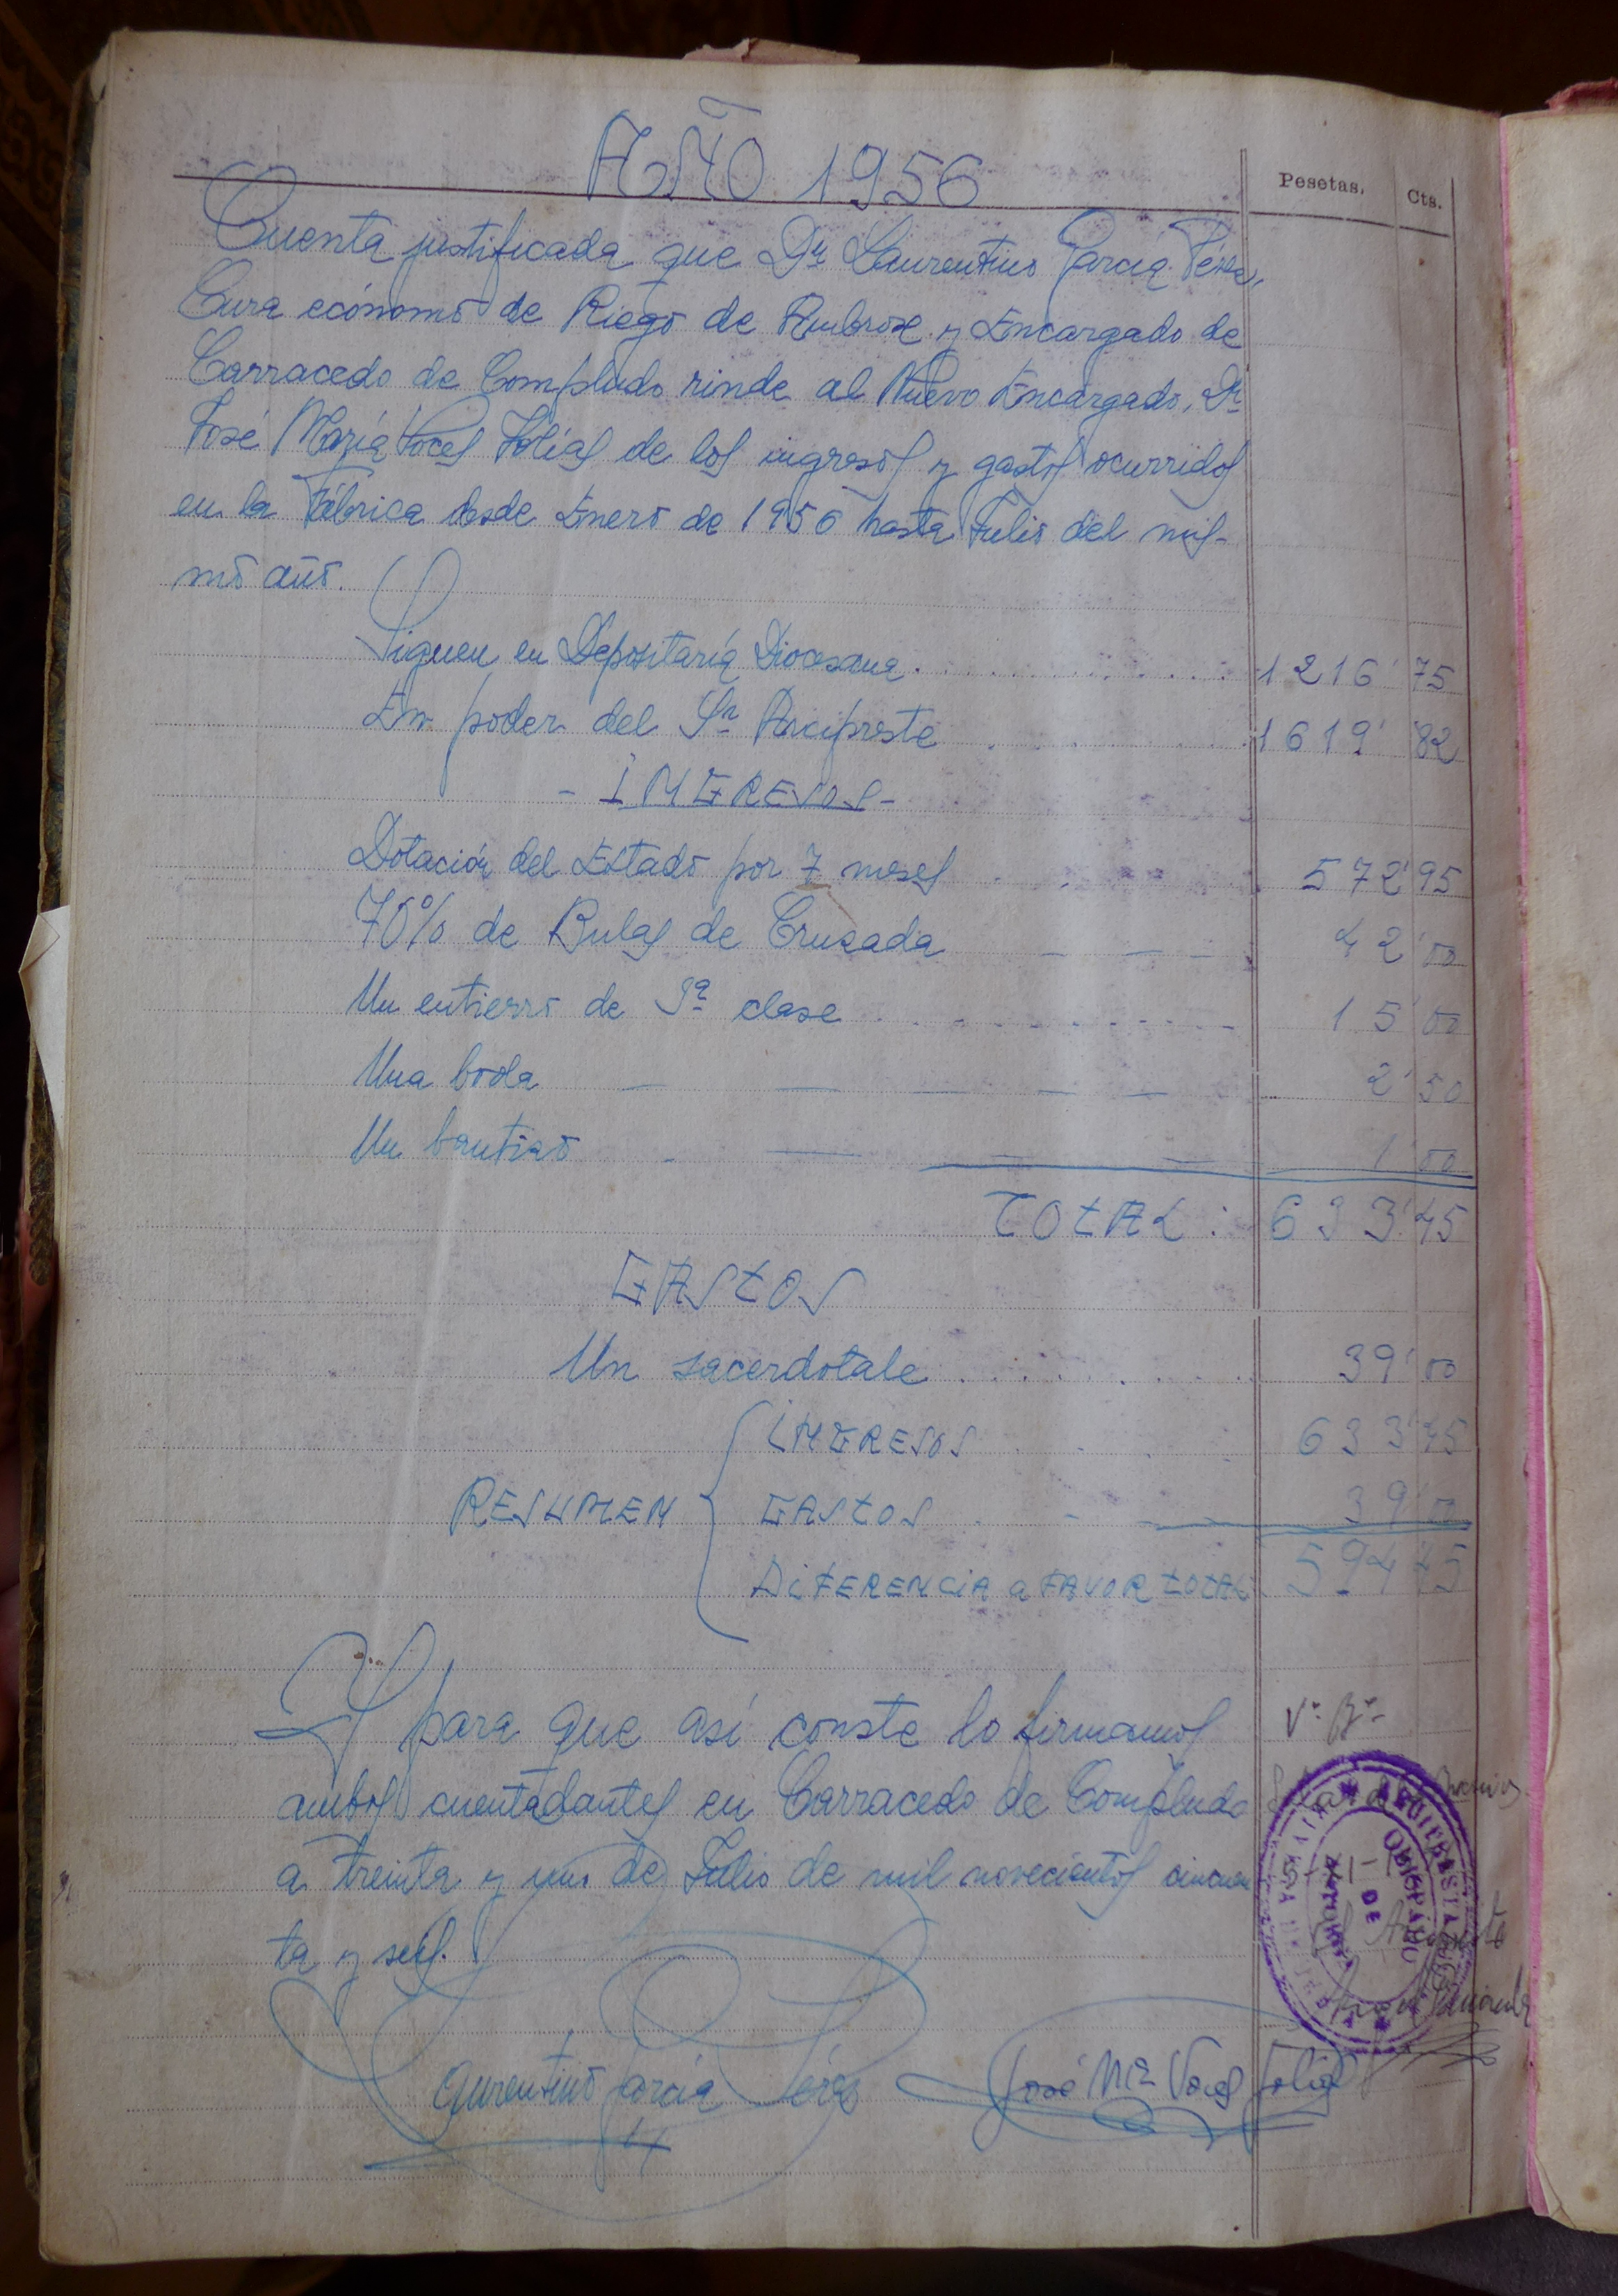 AÑO 1956
Pesetas. Cts.
Cuenta justificada que Dn Laurentino García Pérez,
Cura ecónomo de Riego de Ambroz y Encargado de
Carracedo de Compludo rinde al Nuevo Encargado, Dn
José María Voces Folías de los ingresos y gastos ocurridos
en la Fábrica desde Enero de 1956 hasta Julio del mis-
mo año.
Siguen en Depositaría Diocesana 1216' 75
En poder del Sr Arcipreste 1619' 82
- INGRESOS -
Dotación del Estado por 7 meses 572'95
70% de Bulas de Cruzada 42'00
Un entierro de 3ª clase 15'00
Una boda 2'50
Un bautizo 1'00
TOTAL: 633'45
GASTOS
Un sacerdotale 39'00
INGRESOS 633'45
RESUMEN GASTOS 39'00
DIFERENCIA a FAVOR TOTAL 594'45
Y para que así conste lo firmamos
ambos cuentadantes en Carracedo de Compludo
a treinta y uno de Julio de mil novecientos cincuen
ta y seis.
Vº Bº
OBISPADO
DE
Laurentino García Pérez
José Mª Voces Folías